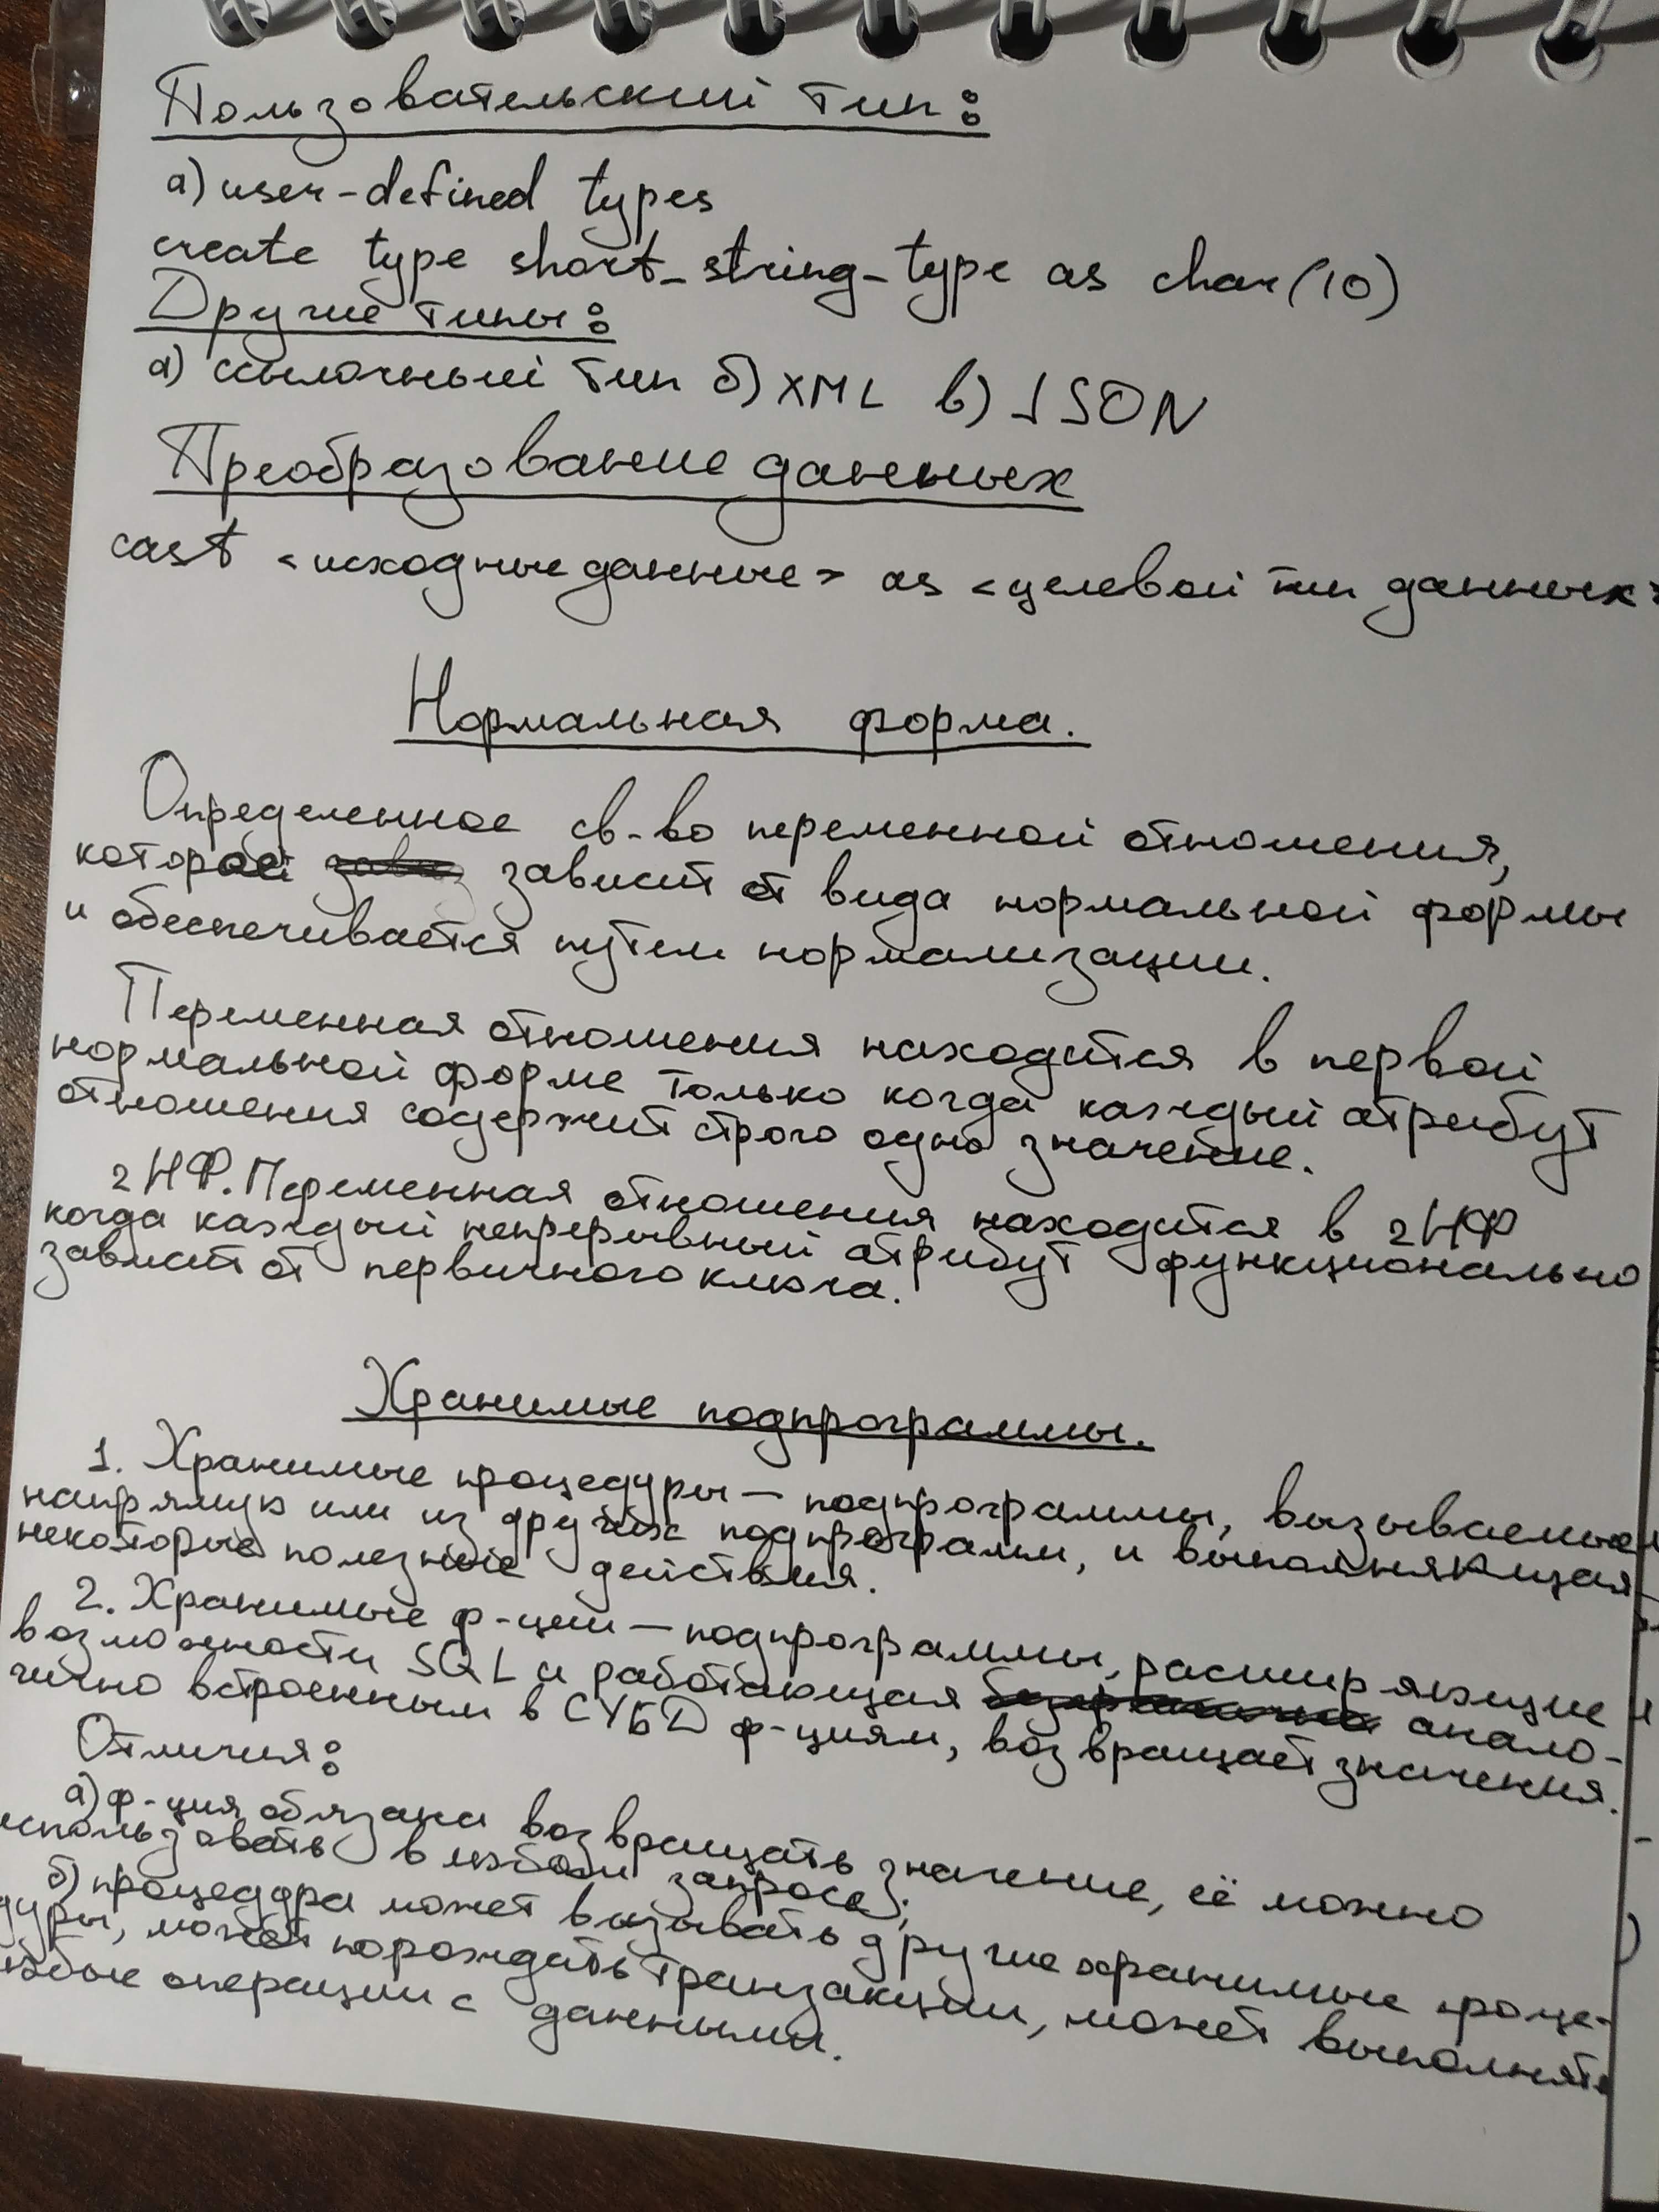 Пользовательский тип:
а) user-defined types
create type short_string_type as char(10)
Другие типы:
а) ссылочный тип б) XML в) JSON
Преобразование данных
cast <исходные данные> as <целевой тип данных>
Нормальная форма.
Определенное св-во переменной отношения,
которой зависит от вида нормальной формы
и обеспечивается путем нормализации.
Переменная отношения находится в первой
нормальной форме только когда каждый атрибут
отношения содержит строго одно значение.
2НФ. Переменная отношения находится в 2НФ
когда каждый непрерывный атрибут функционально
зависит от первичного ключа.
Хранимые подпрограммы.
1. Хранимые процедуры — подпрограммы, вызываемые
напрямую или из других подпрограмм, и выполняющая
некоторые полезные действия.
2. Хранимые ф-ции — подпрограммы, расширяющие
возможности SQL и работающая анало-
гично встроенным в СУБД ф-циям, возвращает значения.
Отличия:
а) ф-ция обязана возвращать значение, её можно
использовать в любом запросе;
б) процедура может вызывать другие хранимые проце-
дуры, может порождать транзакции, может выполнять
любые операции с данными.